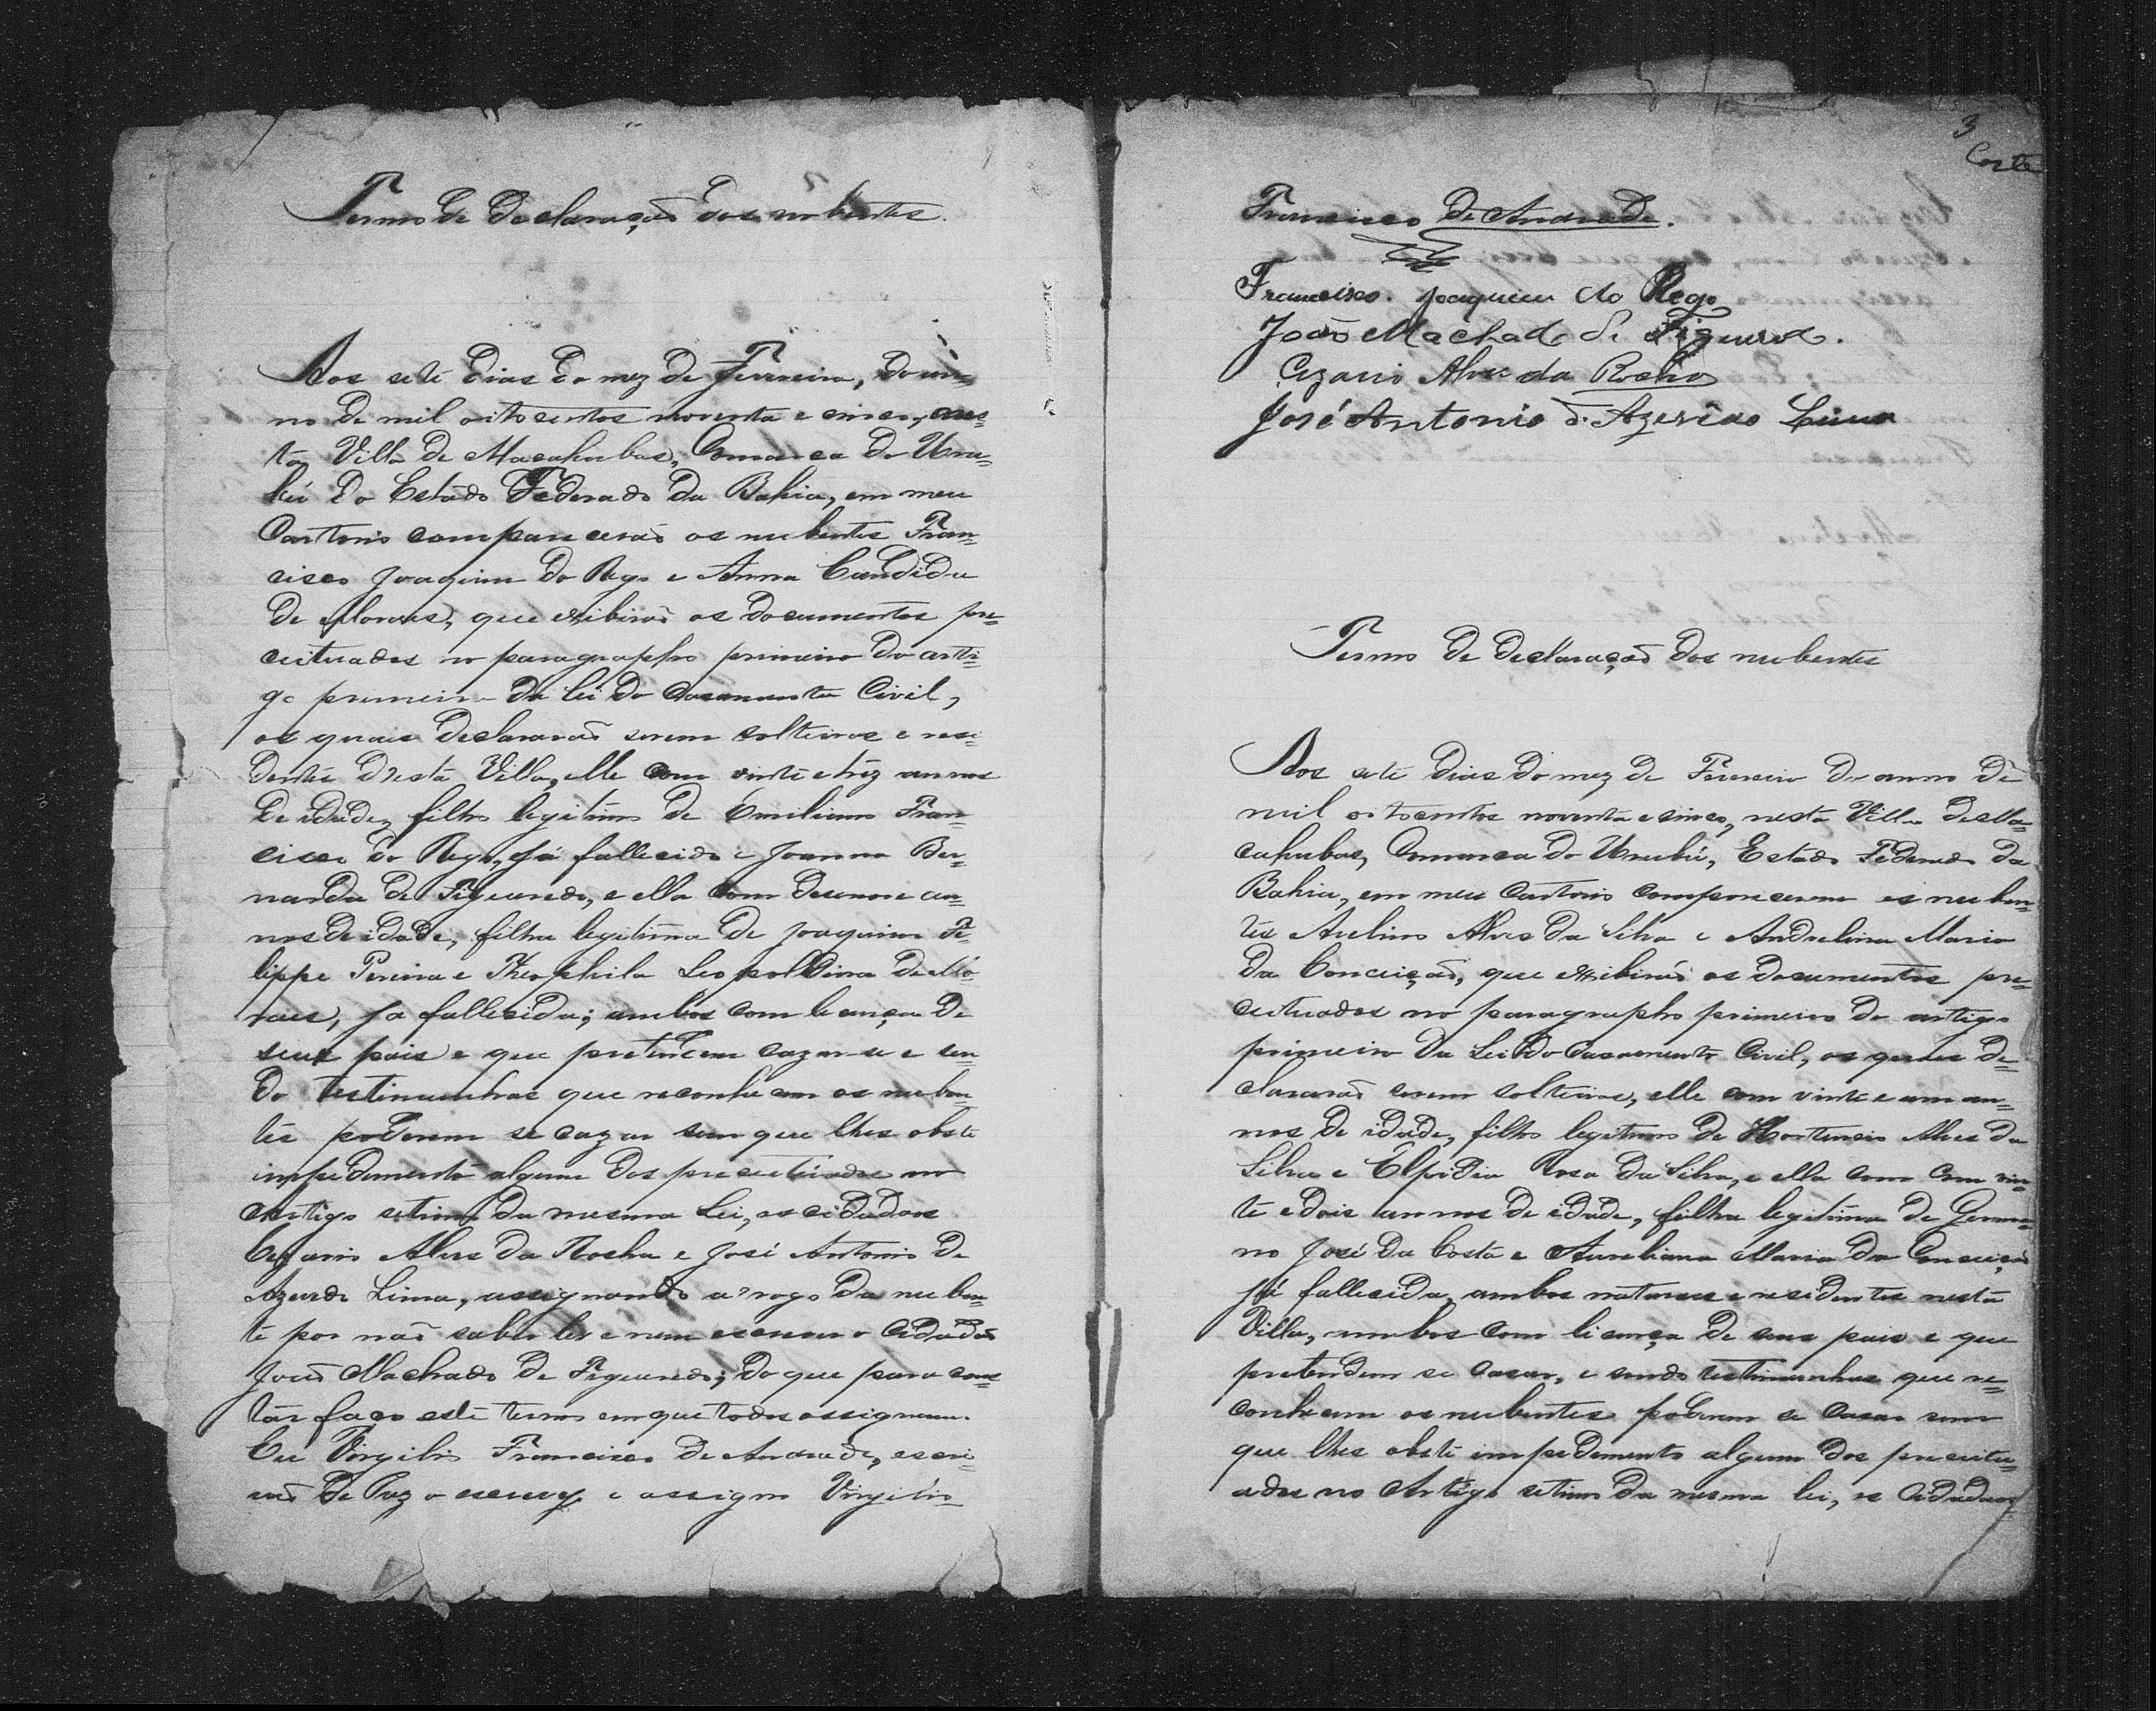 Termo de Declaração dos nubentes.
Aos sete dias do mez de Fevereiro, do an=
no de mil oitocentos noventa e cinco, nes=
ta Villa de Macahubas, Comarca do Uru=
bú do Estado Federado da Bahia, em meu
Cartorio comparecerão os nubentes Fran=
cisco Joaquim do Rego e Anna Candida
de Moraes, que exibirão os documentos pre=
ceituados no paragrapho primeiro do arti=
go primeiro da lei do Casamento Civil,
os quaes declararão serem solteiros e resi=
dentes nesta Villa, elle com vinte e trez annos
de idade, filho legitimo de Emiliano Fran=
cisco do Rego, já fallecido e Joanna Ber=
narda de Figueredo, e ella com desenove an=
nos de idade, filha legitima de Joaquim Fe=
lippe Pereira e Theophila Leopoldina de Mo=
raes, já fallecida; ambos com licença de
seus pais e que pretendem cazar-se e sen=
do testimunhas que reconhecem os nuben=
tes poderem se cazar sem que lhes obste
impedimento algum dos preceituados no
Artigo setimo da mesma Lei, os cidadãos
Cezario Alves da Rocha e José Antonio de
Azevedo Lima, assignando a rogo da nuben=
te por não saber ler e nem escrever o Cidadão
João Machado de Figueredo; do que para cons=
tar faço este termo em que todos assignam.
Eu Virgilio Francisco de Andrade, escri=
vão de Paz o escrevy e assigno Virgilio
3
Francisco de Andrade.
Francisco Joaquim do Rego
João Machado de Figueredo.
Cezario Alves da Rocha
José Antonio d'Azevêdo Lima
Termo de Declaração dos nubentes
Aos sete dias do mez de Fevereiro do anno de
mil oitocentos noventa e cinco, nesta Villa de Ma=
cahubas, Comarca do Urubú, Estado Federado da
Bahia, em meu Cartorio compareceram os nuben=
tes Avelino Alves da Silva e Andrelina Maria
da Conceição, que exhibirão os documentos pre=
ceituados no paragrapho primeiro do artigo
primeiro da Lei do Casamento Civil, os quaes de=
clararão serem solteiros, elle com vinte e um an=
nos de idade, filho legitimo de Hortencio Alves da
Silva e Elpidia Rosa da Silva, e ella com com vin=
te e dois annos de idade, filha legitima de Germa=
no José da Costa e Aureliana Maria da Conceição
já fallecida, ambos naturaes e residentes nesta
Villa, ambos com licença de seus pais e que
pretendem se casar, e sendo testimunhas que re=
conhecem os nubentes poderem se casar sem
que lhes obste impedimento algum dos preceitu=
ados no Artigo setimo da mesma lei, os Cidadãos